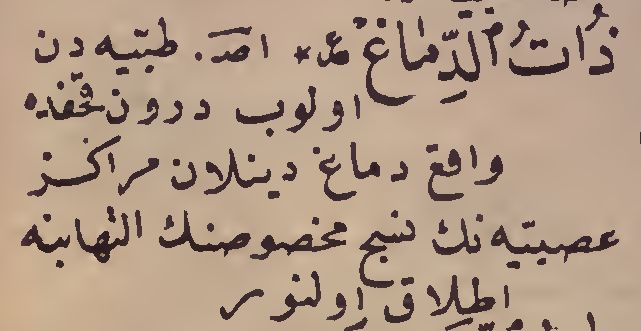 ذَاتُ الدِّمَاغ ع٭ اصـ. طبّيه دن
اولوب درون قحفده
واقع دماغ دینلان مراکز
عصبیّه نك نسج مخصوصنك التهابنه
اطلاق اولنور